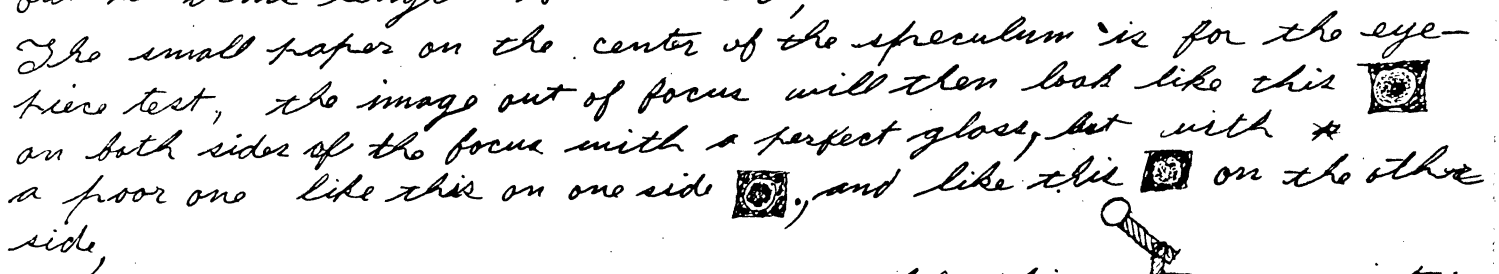 The small paper on the center of the speculum is for the eye-
piece test, the image out of focus will then look like this
on both sides of the focus with a perfect glass, but with
a poor one like this on one side , and like this on the other
side,